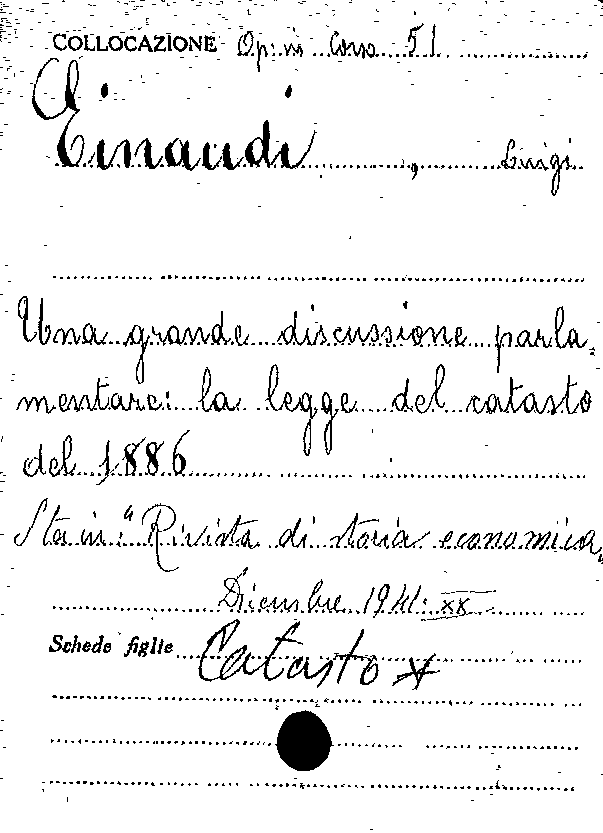 COLLOCAZIONE Op. in Corso 51
Einaudi, Luigi
Una grande discussione parla-
mentare: la legge del catasto
del 1886
Sta in: "Rivista di storia economica"
Dicembre 1941: XX
Schede figlie Catasto *